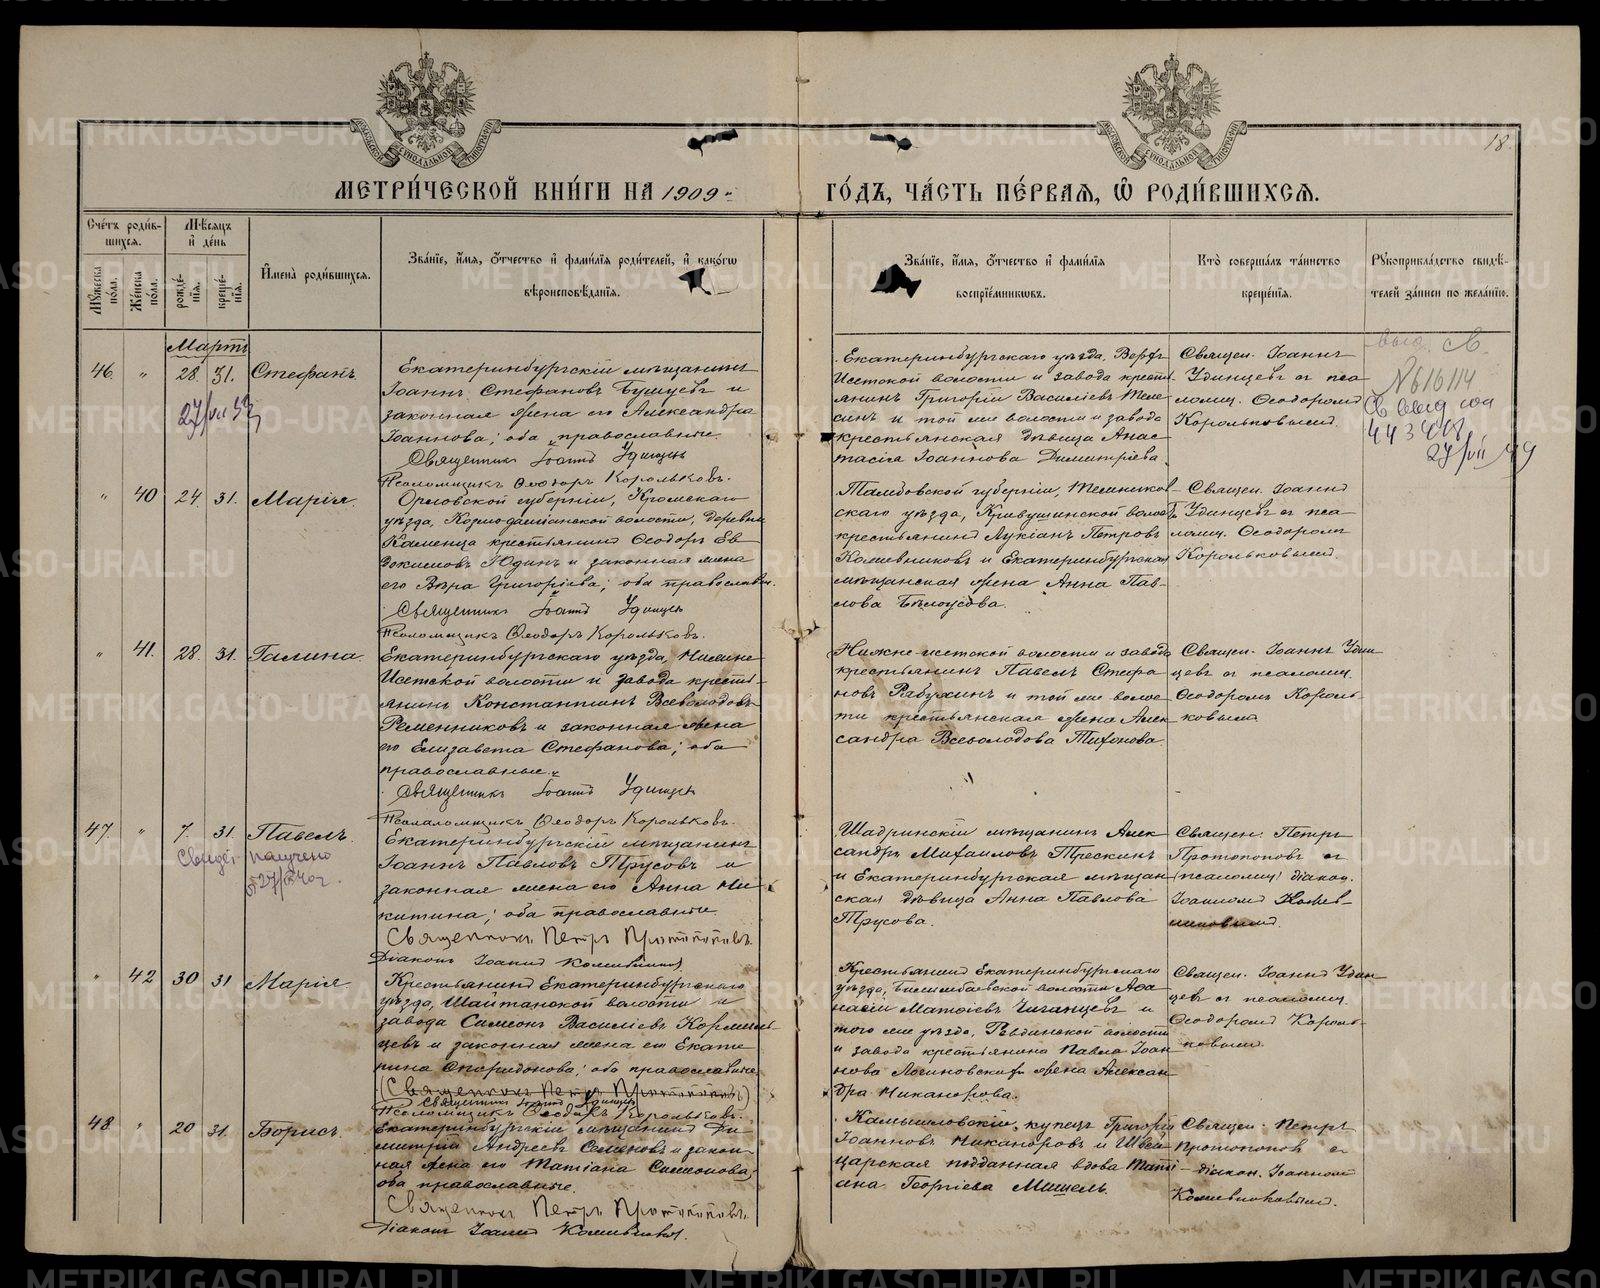 18.
МЕТРИ́ЧЕСКОЙ КНИ́ГИ НА 1909
ГО́ДЪ, ЧА́СТЬ ПЕ́РВАЯ, Ѿ РОДИ́ВШИХСЯ.
Сче́тъ роди́вшихся.
Му́жеска по́ла.
Же́нска по́ла.
Мѣ́сяцъ и де́нь
рожде́нїя.
креще́нїя.
Имена̀ роди́вшихся.
Зва́нїе, и́мя, о́тчество и фами́лїя роди́телей, и како́гѡ
вѣроисповѣ́данїя.
Зва́нїе, и́мя, о́тчество и фами́лїя
воспрїе́мниковъ.
Кто̀ соверша́лъ та́инство
креще́нїя.
Рукоприкла́дство свидѣ́телей за́писи по жела́нїю.
Мартъ
46. " 28. 31. Стефанъ.
Екатеринбургскій мѣщанинъ
Іоаннъ Стефановъ и
законная жена его Александра
Іоаннова; оба православные.
Священникъ Іоаннъ Удинцевъ
Псаломщикъ Ѳеодоръ Корольковъ.
Екатеринбургскаго уѣзда, Верхъ
Исетской волости и завода крестьянинъ Григорій Василіевъ
и той же волости и завода
крестьянская дѣвица Анастасія Іоаннова Димитріева.
Священ. Іоаннъ
Удинцевъ съ псаломщ. Ѳеодоромъ
Корольковымъ.
" 40 24. 31. Марія.
Орловской губерніи, Кромскаго
уѣзда, волости, деревни
Каменца крестьянинъ Ѳеодоръ Евдокимовъ Юдинъ и законная жена
его Вѣра Григоріева; оба православн.
Священникъ Іоаннъ Удинцевъ
Псаломщикъ Ѳеодоръ Корольковъ.
Тамбовской губерніи, Темниковскаго уѣзда, Кривушинской волости
крестьянинъ Лукіанъ Петровъ
Кожевниковъ и Екатеринбургская
мѣщанская жена Анна Павлова Бѣлоусова.
Священ. Іоаннъ
Удинцевъ съ псаломщ. Ѳеодоромъ
Корольковымъ.
" 41. 28. 31. Галина.
Екатеринбургскаго уѣзда, Нижне
Исетской волости и завода крестьянинъ Константинъ Всеволодовъ
Ременниковъ и законная жена
его Елизавета Стефанова; оба
православные.
Священникъ Іоаннъ Удинцевъ
Псаломщикъ Ѳеодоръ Корольковъ.
Нижне-исетской волости и завода
крестьянинъ Павелъ Стефановъ Рябухинъ и той же волости крестьянская жена Александра Всеволодова Тихонова.
Священ. Іоаннъ Удинцевъ съ псаломщ.
Ѳеодоромъ Корольковымъ.
47. " 7. 31. Павелъ.
получено
Екатеринбургскій мѣщанинъ
Іоаннъ Павловъ Трусовъ и
законная жена его Анна Никитина; оба православные.
Священникъ Петръ Протопоповъ.
Діаконъ Іоаннъ Кожевниковъ.
Шадринскій мѣщанинъ Александръ Михаиловъ Трескинъ
и Екатеринбургская мѣщанская дѣвица Анна Павлова
Трусова.
Священ. Петръ
Протопоповъ съ
псаломщ. діакон.
Іоанномъ Кожевниковымъ.
" 42 30 31 Марія
Крестьянинъ Екатеринбургскаго
уѣзда, Шайтанской волости и
завода Симеонъ Василіевъ Кормильцевъ и законная жена его Екатерина Спиридонова; оба православные.
(Священникъ Петръ Протопоповъ)
Священникъ Іоаннъ Удинцевъ
Псаломщикъ Ѳеодоръ Корольковъ.
Крестьянинъ Екатеринбургскаго
уѣзда, Билимбаевской волости Аѳанасій Матѳіевъ и
того же уѣзда, Ревдинской волости
и завода крестьянина Павла Іоаннова Логиновскихъ жена Александра Никанорова.
Священ. Іоаннъ Удинцевъ съ псаломщ.
Ѳеодоромъ Корольковымъ.
48. " 20 31. Борисъ.
Екатеринбургскій мѣщанинъ Димитрій Андреевъ Семеновъ и законная жена его Татіана Симеонова;
оба православные.
Священникъ Петръ Протопоповъ.
Діаконъ Іоаннъ Кожевниковъ.
Камышловскій купецъ Григорій
Іоанновъ Никаноровъ и Швейцарская подданная вдова Татіана Георгіева Мишель.
Священ. Петръ
Протопоповъ съ
діакон. Іоанномъ
Кожевниковымъ.
METRIKI.GASO-URAL.RU